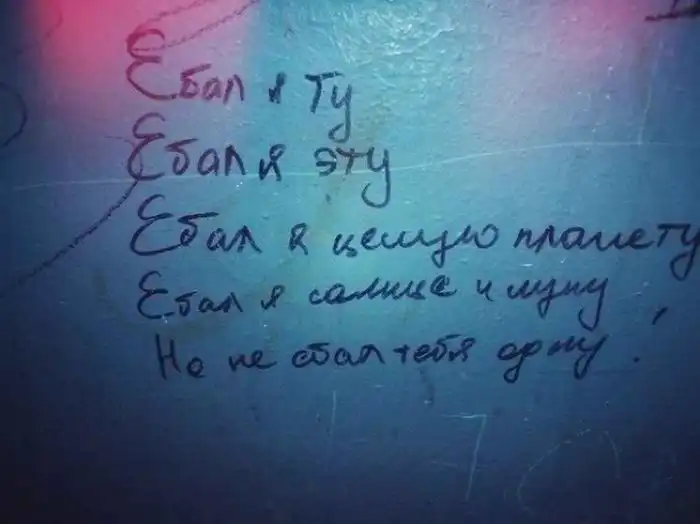 Ебал я ту
Ебал я эту
Ебал я целую планету
Ебал я солнце и луну
Но не ебал тебя одну!